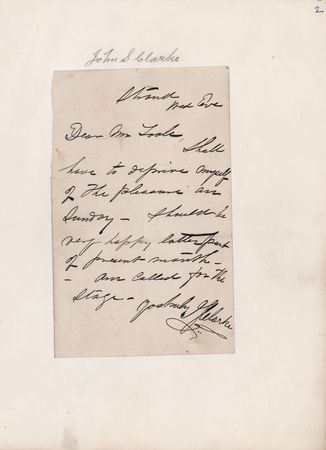 2
John S Clarke
Strand
Wed Eve
Dear Mr Toole,
Shall
have to deprive myself
of the pleasure on
Sunday – Should be
very happy latter part
of present month –
– Am called for the
Stage –
JSClarke